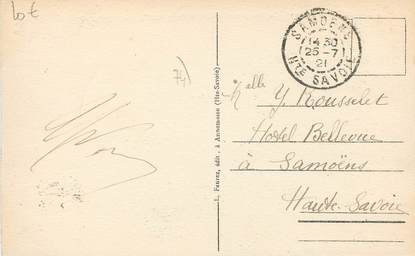 10 €
74)
SAMOËNS
14 30
25 - 7
21
HTE SAVOIE
Melle Y. Rousselet
Hotel Bellevue
à Samoëns
Haute-Savoie
édit., à Annemasse (Hte-Savoie)